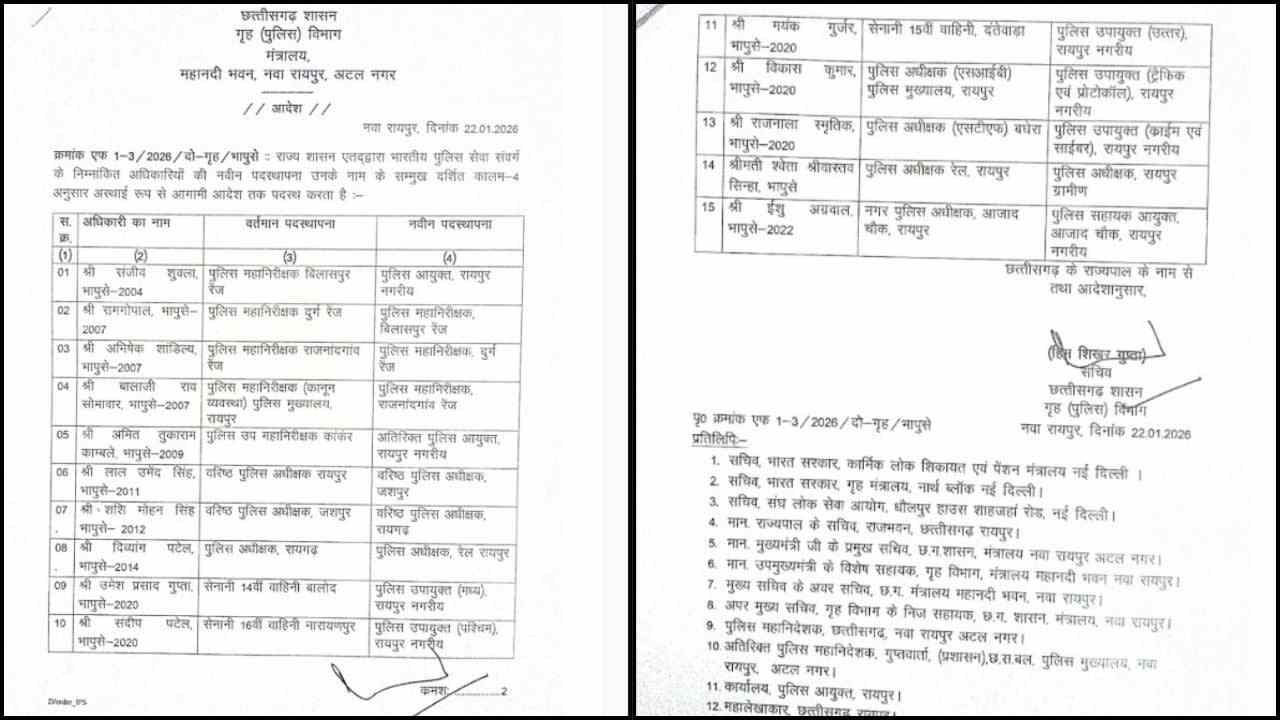 छत्तीसगढ़ शासन
गृह (पुलिस) विभाग
मंत्रालय,
महानदी भवन, नवा रायपुर, अटल नगर
// आदेश //
नवा रायपुर, दिनांक 22.01.2026
क्रमांक एफ 1-3/2026/दो-गृह/भापुसे : राज्य शासन एतद्द्वारा भारतीय पुलिस सेवा संवर्ग
के निम्नांकित अधिकारियों की नवीन पदस्थापना उनके नाम के सम्मुख दर्शित कालम-4
अनुसार अस्थाई रूप से आगामी आदेश तक पदस्थ करता है :-
स. क्र. अधिकारी का नाम वर्तमान पदस्थापना नवीन पदस्थापना
(1) (2) (3) (4)
01 श्री संजीव शुक्ला, पुलिस महानिरीक्षक बिलासपुर पुलिस आयुक्त, रायपुर
भापुसे-2004 रेंज नगरीय
02 श्री रामगोपाल, भापुसे- पुलिस महानिरीक्षक दुर्ग रेंज पुलिस महानिरीक्षक,
2007 बिलासपुर रेंज
03 श्री अभिषेक शांडिल्य, पुलिस महानिरीक्षक राजनांदगांव पुलिस महानिरीक्षक, दुर्ग
भापुसे-2007 रेंज रेंज
04 श्री बालाजी राव पुलिस महानिरीक्षक (कानून पुलिस महानिरीक्षक,
सोमावार, भापुसे-2007 व्यवस्था) पुलिस मुख्यालय, राजनांदगांव रेंज
रायपुर
05 श्री अमित तुकाराम पुलिस उप महानिरीक्षक कांकेर अतिरिक्त पुलिस आयुक्त,
काम्बले, भापुसे-2009 रायपुर नगरीय
06 श्री लाल उमेंद सिंह, वरिष्ठ पुलिस अधीक्षक रायपुर वरिष्ठ पुलिस अधीक्षक,
भापुसे-2011 जशपुर
07 श्री शशि मोहन सिंह वरिष्ठ पुलिस अधीक्षक, जशपुर वरिष्ठ पुलिस अधीक्षक,
. भापुसे- 2012 रायगढ़
08 श्री दिव्यांग पटेल, पुलिस अधीक्षक, रायगढ़ पुलिस अधीक्षक, रेल रायपुर
. भापुसे-2014
09 श्री उमेश प्रसाद गुप्ता, सेनानी 14वीं वाहिनी बालोद पुलिस उपायुक्त (मध्य),
भापुसे-2020 रायपुर नगरीय
10 श्री संदीप पटेल, सेनानी 16वीं वाहिनी नारायणपुर पुलिस उपायुक्त (पश्चिम),
भापुसे-2020 रायपुर नगरीय
क्रमश: ..............2
11 श्री मयंक गुर्जर, सेनानी 15वीं वाहिनी, दंतेवाड़ा पुलिस उपायुक्त (उत्तर),
भापुसे-2020 रायपुर नगरीय
12 श्री विकास कुमार, पुलिस अधीक्षक (एसआईबी) पुलिस उपायुक्त (ट्रैफिक
भापुसे-2020 पुलिस मुख्यालय, रायपुर एवं प्रोटोकॉल), रायपुर
नगरीय
13 श्री राजनाला स्मृतिक, पुलिस अधीक्षक (एसटीएफ) बघेरा पुलिस उपायुक्त (क्राईम एवं
भापुरो-2020 साईबर), रायपुर नगरीय
14 श्रीमती श्वेता श्रीवास्तव पुलिस अधीक्षक रेल, रायपुर पुलिस अधीक्षक, रायपुर
सिन्हा, भापुसे ग्रामीण
15 श्री ईशु अग्रवाल, नगर पुलिस अधीक्षक, आजाद पुलिस सहायक आयुक्त,
भापुसे-2022 चौक, रायपुर आजाद चौक, रायपुर
नगरीय
छत्तीसगढ़ के राज्यपाल के नाम से
तथा आदेशानुसार,
(हिम शिखर गुप्ता)
सचिव
छत्तीसगढ़ शासन
गृह (पुलिस) विभाग
पृ0 क्रमांक एफ 1-3/2026/दो-गृह/भापुसे
नवा रायपुर, दिनांक 22.01.2026
प्रतिलिपि:-
1. सचिव, भारत सरकार, कार्मिक लोक शिकायत एवं पेंशन मंत्रालय नई दिल्ली ।
2. सचिव, भारत सरकार, गृह मंत्रालय, नार्थ ब्लॉक नई दिल्ली।
3. सचिव, संघ लोक सेवा आयोग, धौलपुर हाउस शाहजहां रोड, नई दिल्ली।
4. मान. राज्यपाल के सचिव, राजभवन, छत्तीसगढ़ रायपुर।
5. मान. मुख्यमंत्री जी के प्रमुख सचिव, छ.ग.शासन, मंत्रालय नवा रायपुर अटल नगर।
6. मान. उपमुख्यमंत्री के विशेष सहायक, गृह विभाग, मंत्रालय महानदी भवन नवा रायपुर।
7. मुख्य सचिव के अवर सचिव, छ.ग. मंत्रालय महानदी भवन, नवा रायपुर।
8. अपर मुख्य सचिव, गृह विभाग के निज सहायक, छ.ग. शासन, मंत्रालय, नवा रायपुर।
9. पुलिस महानिदेशक, छत्तीसगढ़, नवा रायपुर अटल नगर।
10. अतिरिक्त पुलिस महानिदेशक, गुप्तवार्ता, (प्रशासन),छ.स.बल, पुलिस मुख्यालय, नवा
रायपुर, अटल नगर।
11. कार्यालय, पुलिस आयुक्त, रायपुर।
12. महालेखाकार, छत्तीसगढ़ रायपुर।